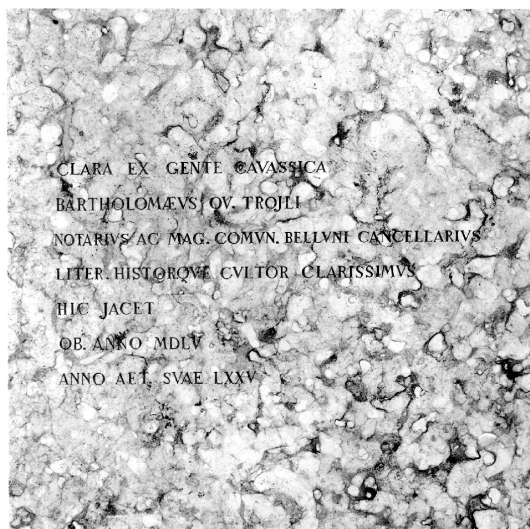 CLARA EX GENTE CAVASSICA
BARTHOLOMÆVS QV. TROJLI
NOTARIVS AC MAG. COMVN. BELLVNI CANCELLARIVS
LITER. HISTORQVE CVLTOR CLARISSIMVS
HIC JACET
OB. ANNO MDLV
ANNO AET. SVAE LXXV